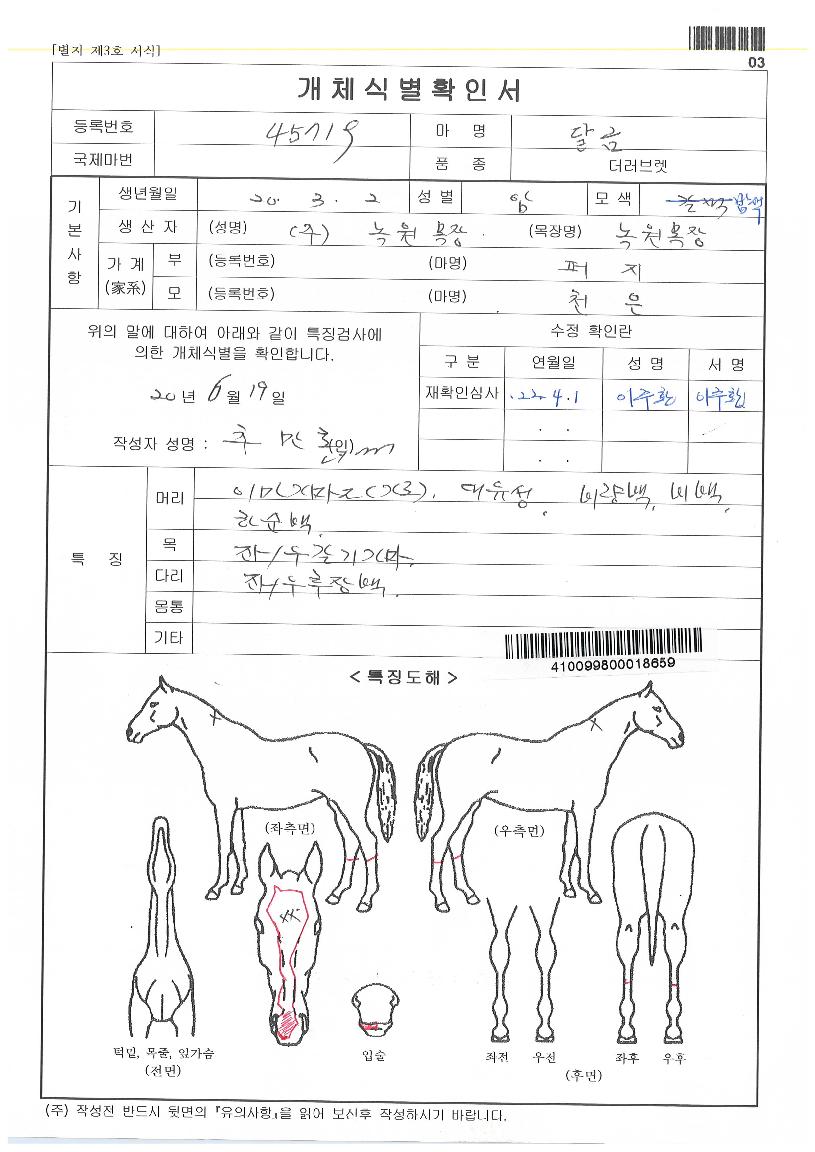 [별지 제3호 서식]
03
개체식별확인서
등록번호 45719 마 명 달금
국제마번 품 종 더러브렛
기본사항
생년월일 20. 3. 2 성별 암 모색 갈색 밤색
생산자 (성명) (주) 녹원목장. (목장명) 녹원목장
가계 (家系) 부 (등록번호) (마명) 퍼지
모 (등록번호) (마명) 천은
위의 말에 대하여 아래와 같이 특징검사에
의한 개체식별을 확인합니다.
20년 6월 19일
작성자 성명 : (인)
수정 확인란
구분 연월일 성명 서명
재확인심사 .22.4.1 이주환 이주환
. .
. .
특 징
머리 대유성. 비량백, 비백,
하순백.
목 좌/우갈기가마.
다리 좌/우후장백.
몸통
기타
410099800018659
<특징도해>
(좌측면) (우측면)
턱밑, 목줄, 앞가슴
(전면)
입술
좌전 우전 좌후 우후
(후면)
(주) 작성전 반드시 뒷면의 『유의사항』을 읽어 보신후 작성하시기 바랍니다.